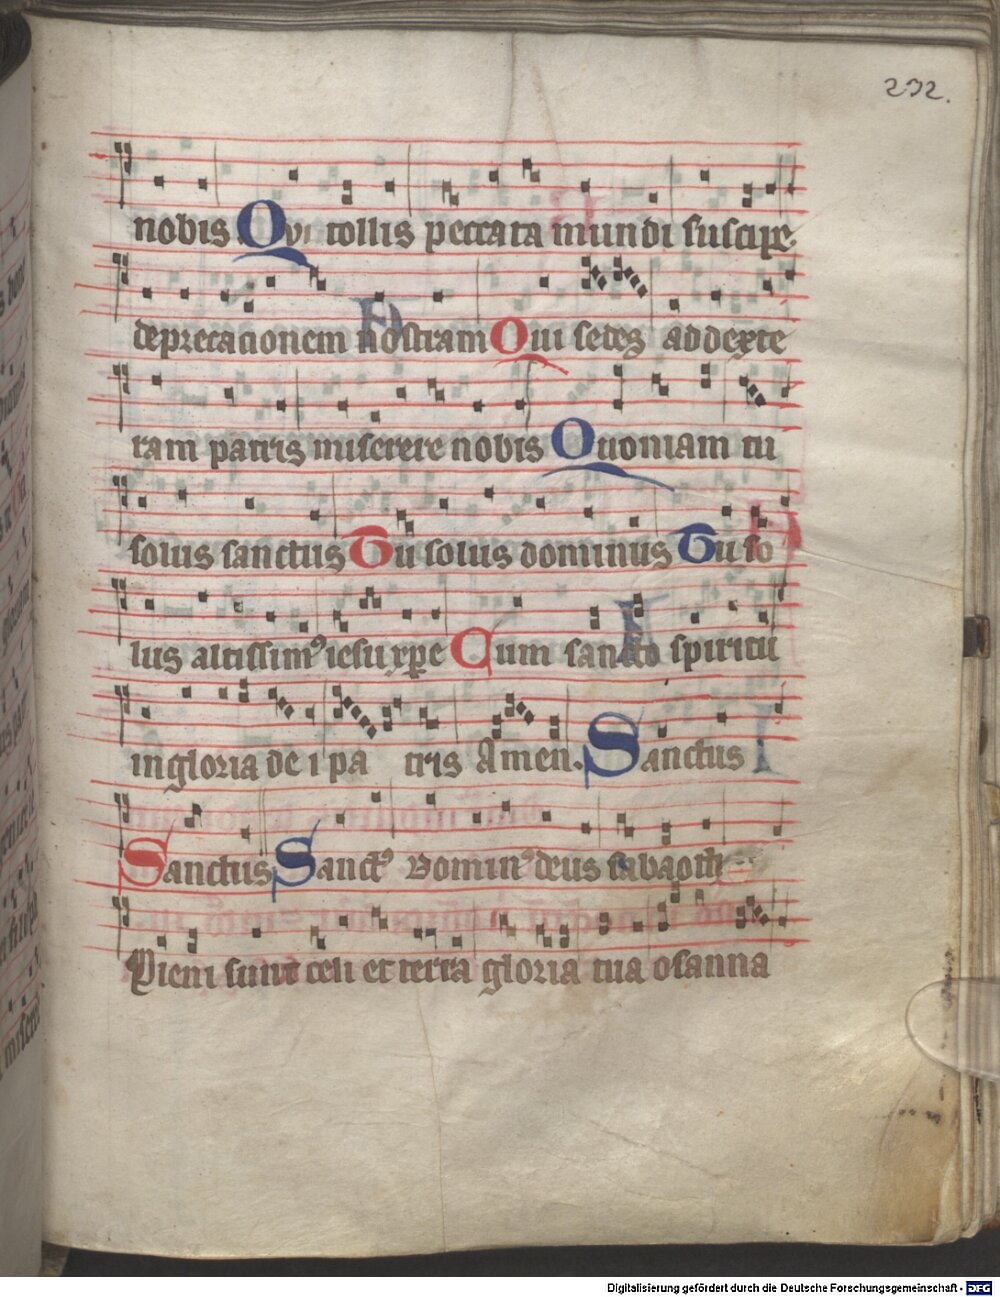 232.
nobis Qui tollis peccata mundi suscipe
deprecationem nostram Qui sedes ad dexte
ram patris miserere nobis Quoniam tu
solus sanctus Tu solus dominus Tu so
lus altissim⁹ iesu xp̄e Cum sancto spiritu
in gloria de i pa tris Amen. Sanctus
Sanctus Sanct⁹ Domin⁹ deus sabaoth
Pleni sunt celi et terra gloria tua osanna
Digitalisierung gefördert durch die Deutsche Forschungsgemeinschaft - DFG